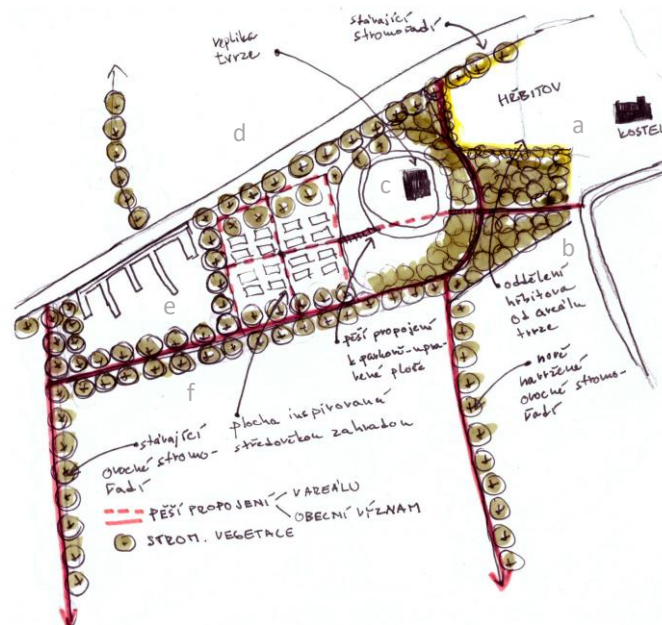 replika
tvrze
stávající
stromořadí
HŘBITOV
KOSTEL
a
b
c
d
e
f
oddělení
hřbitova
od areálu
tvrze
pěší propojení
k parkově upra-
vené ploše
nově
navržené
ovocné stromo-
řadí
plocha inspirovaná
středověkou zahradou
stávající
ovocné stromo-
řadí
PĚŠÍ PROPOJENÍ
V AREÁLU
OBECNÍ VÝZNAM
STROM. VEGETACE